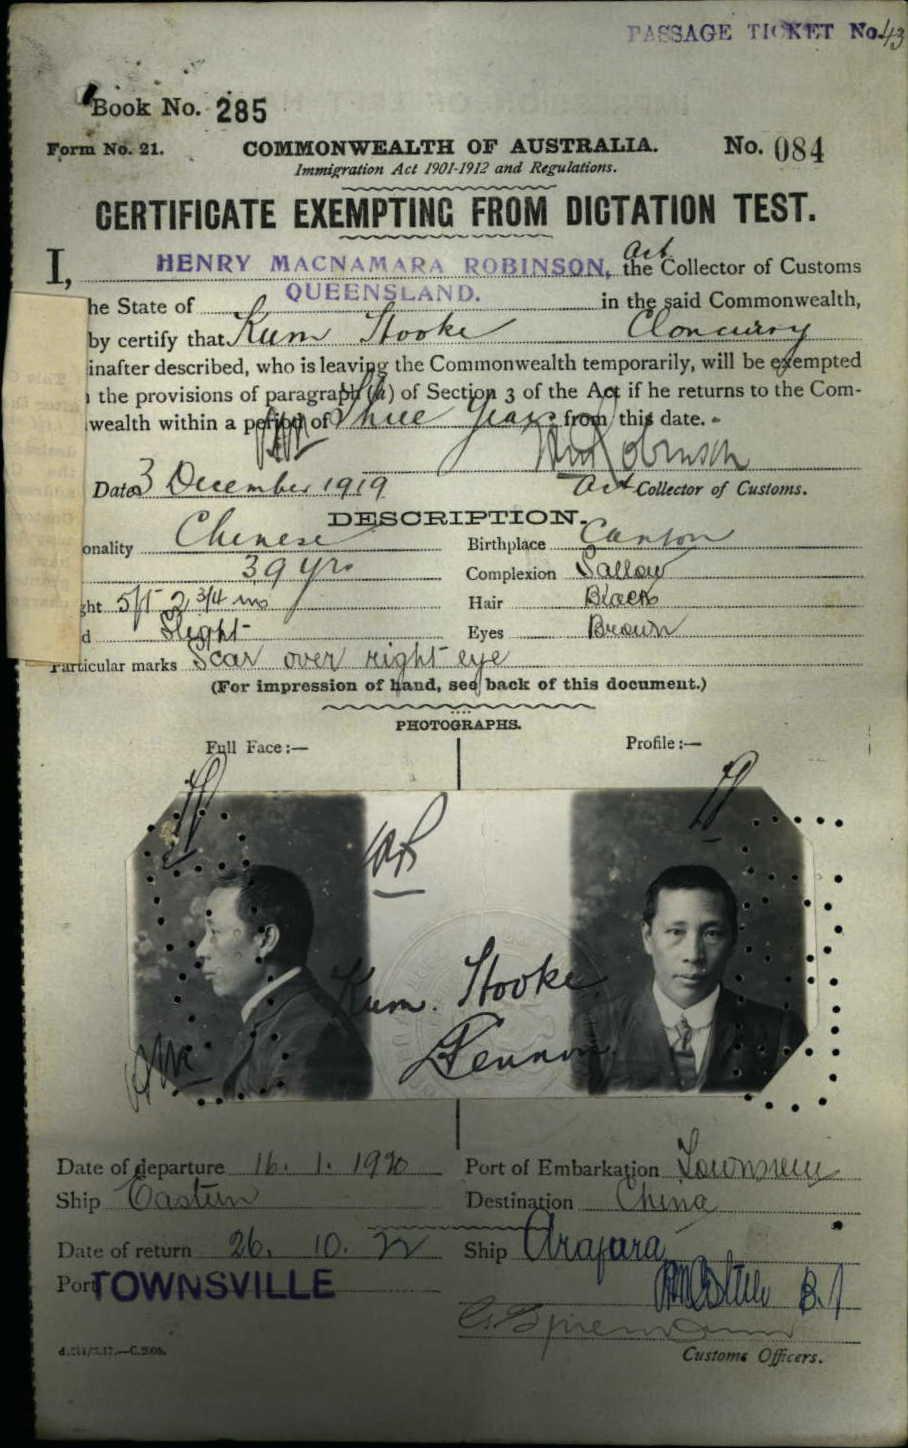 PASSAGE TICKET No. 43
Book No. 285
Form No. 21. COMMONWEALTH OF AUSTRALIA. No. 084
Immigration Act 1901-1912 and Regulations.
CERTIFICATE EXEMPTING FROM DICTATION TEST.
I, HENRY MACNAMARA ROBINSON, Act. the Collector of Customs
he State of QUEENSLAND. in the said Commonwealth,
by certify that Kum Hooke Cloncurry
inafter described, who is leaving the Commonwealth temporarily, will be exempted
the provisions of paragraph (a) of Section 3 of the Act if he returns to the Com-
wealth within a period of Three Years from this date.
Robinson
Date 3 December 1919 Act Collector of Customs.
DESCRIPTION.
onality Chinese Birthplace Canton
39 yrs Complexion Sallow
ght 5ft 2 3/4 ins Hair Black
d Slight Eyes Brown
Particular marks Scar over right eye
(For impression of hand, see back of this document.)
PHOTOGRAPHS.
Full Face :— Profile :—
Kum. Hooke
Lennon
Date of departure 16. 1. 1920 Port of Embarkation Townsville
Ship Eastern Destination China
Date of return 26. 10. 22 Ship Arafura
Port TOWNSVILLE
Customs Officers.